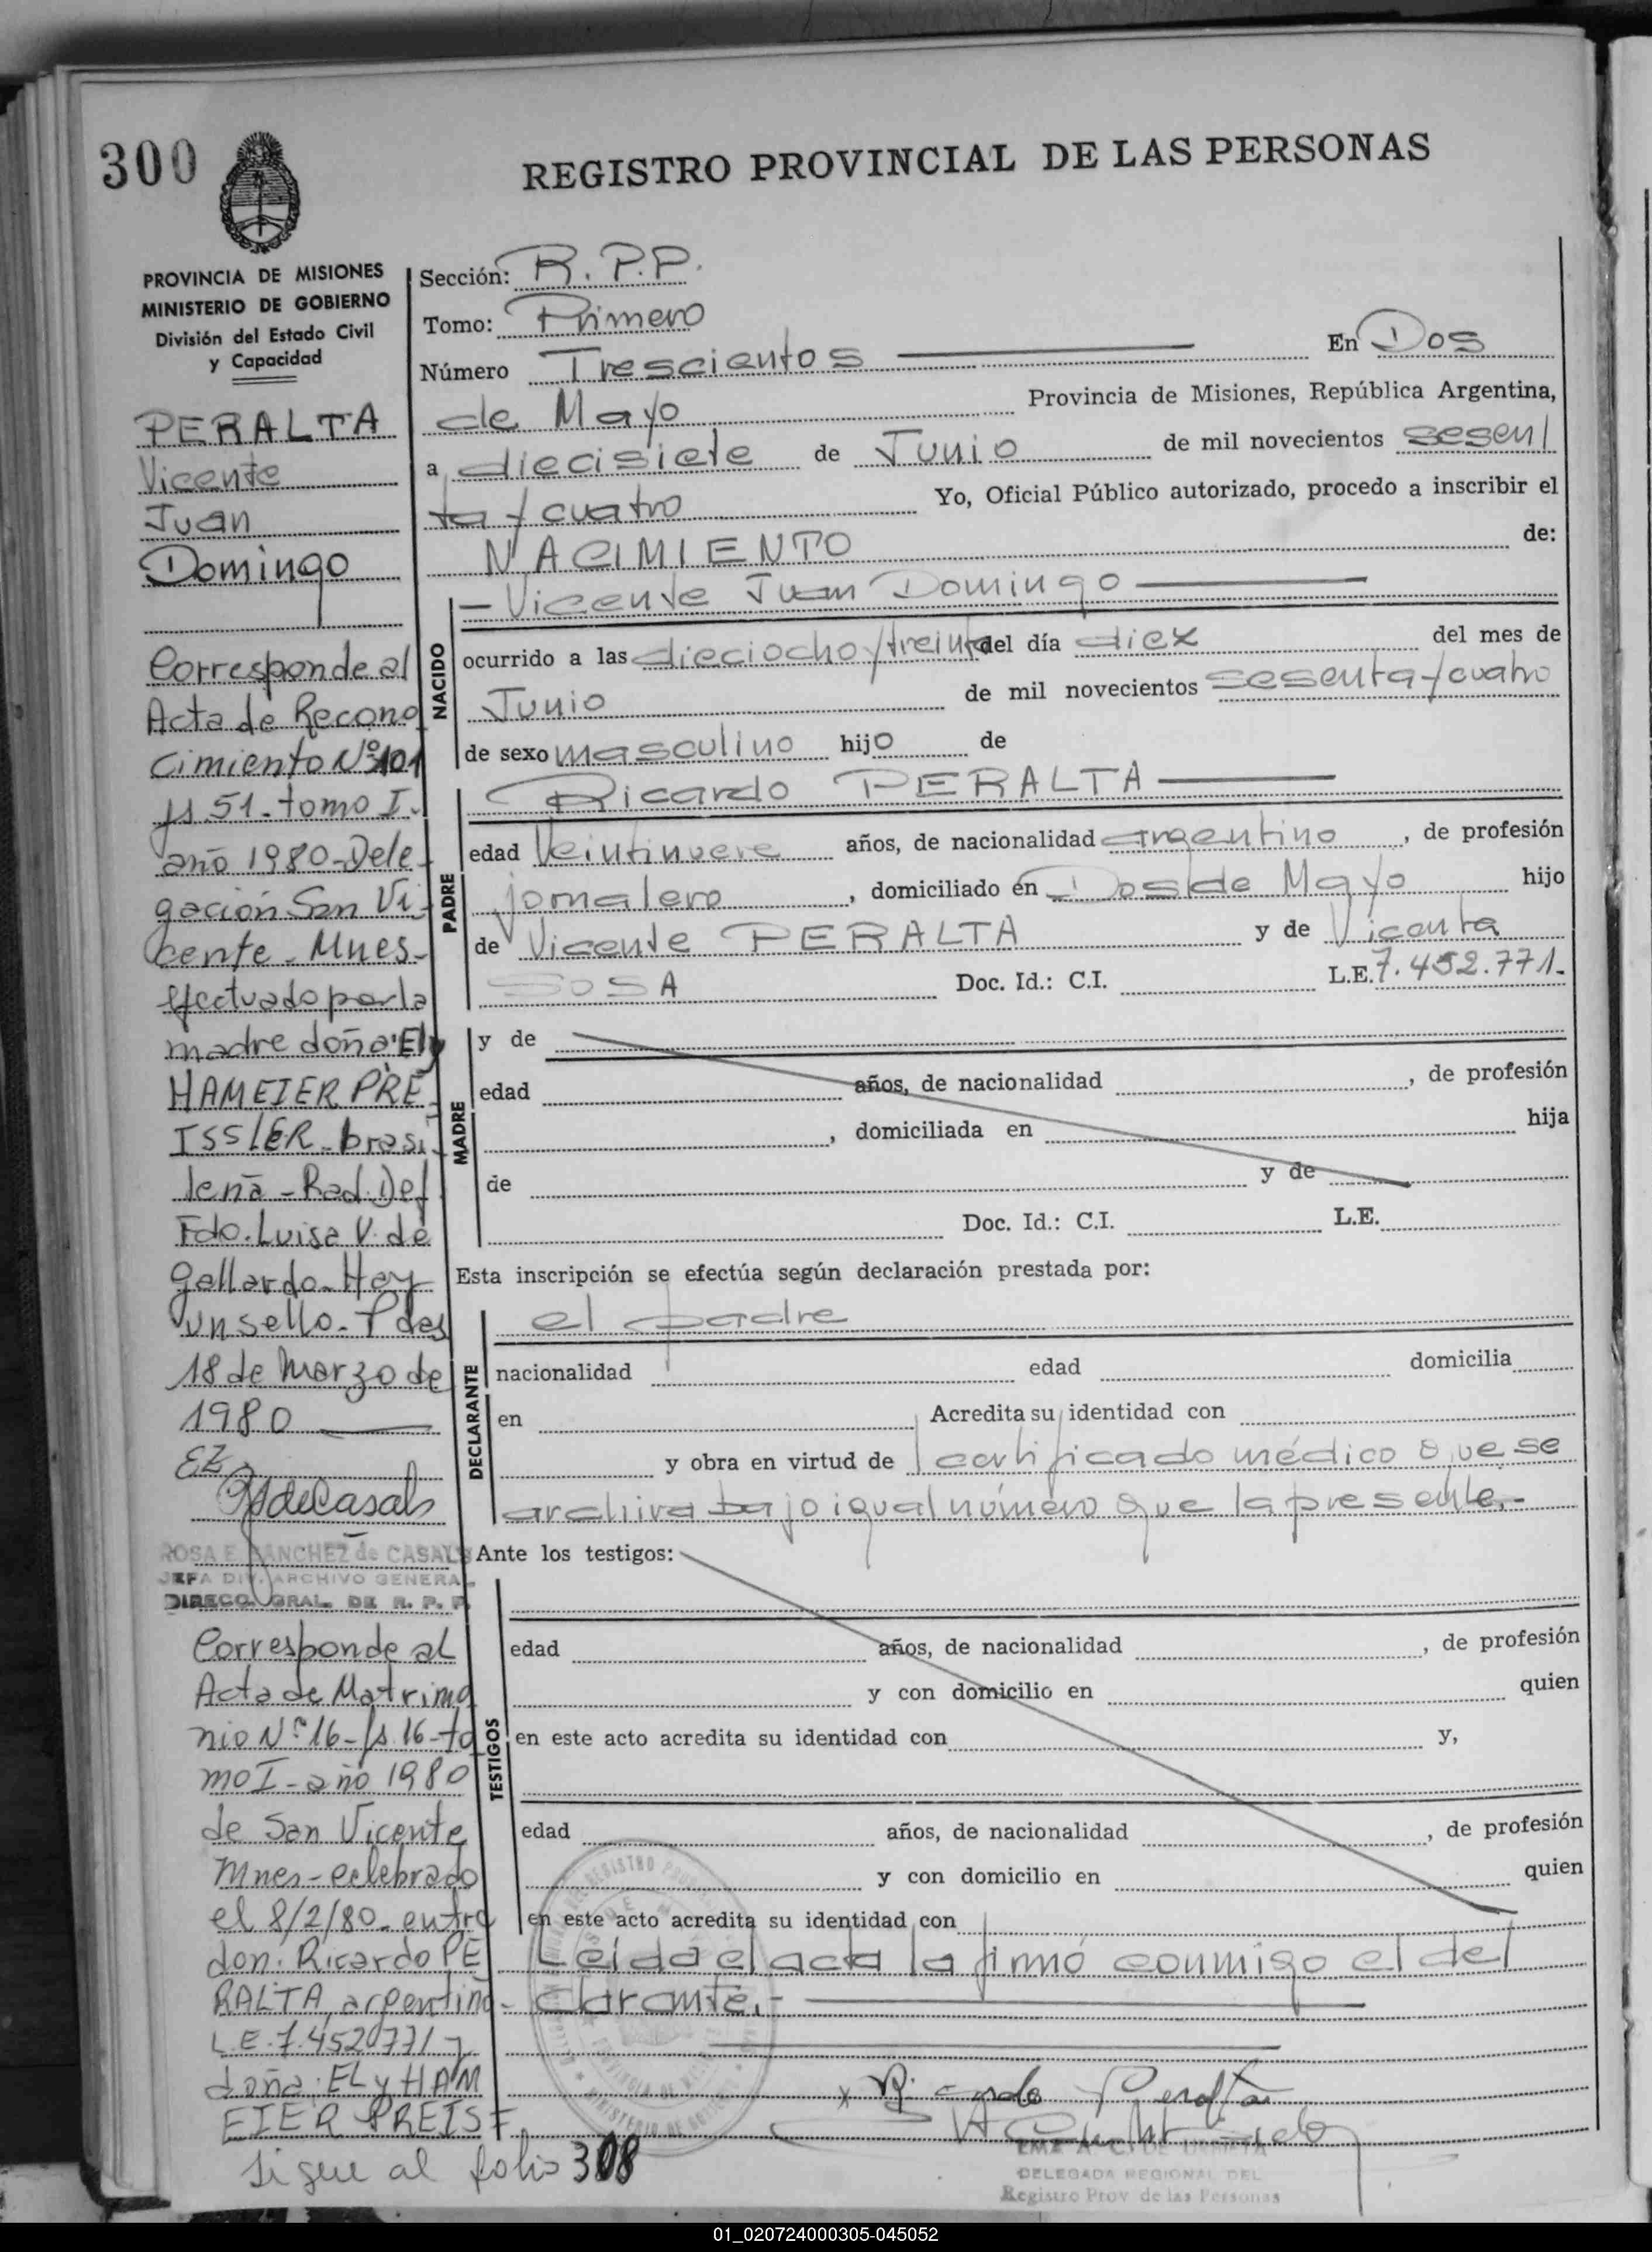 300
REGISTRO PROVINCIAL DE LAS PERSONAS
PROVINCIA DE MISIONES
MINISTERIO DE GOBIERNO
División del Estado Civil
y Capacidad
PERALTA
Vicente
Juan
Domingo
Corresponde al
Acta de Recono
cimiento Nº 101
fs 51 - tomo I.
año 1980 - Dele
gación San Vi
cente - Mnes -
efectuado por la
madre doña: Ely
HAMEIER PRE
ISSLER - brasi
leña - Rad. Def
Fdo. Luisa V. de
Gallardo - Hay
un sello - Pdas
18 de Marzo de
1980
EZ
ROSA E. SANCHEZ de CASALS
JEFA DIV. ARCHIVO GENERAL
DIRECC. GRAL. DE R. P. P.
Corresponde al
Acta de Matrimo
nio Nº 16 - fs. 16 - to
mo I - año 1980
de San Vicente
Mnes - celebrado
el 8/2/80 - entre
don: Ricardo PE
RALTA, argentino -
L.E. 7.452.771 y
doña: ELy HAM
EIER PREISF
Sigue al folio 308
Sección: R. P. P.
Tomo: Primero
Número Trescientos En Dos
de Mayo Provincia de Misiones, República Argentina,
a diecisiete de Junio de mil novecientos sesen
ta y cuatro Yo, Oficial Público autorizado, procedo a inscribir el
NACIMIENTO de:
NACIDO
- Vicente Juan Domingo
ocurrido a las dieciocho y treinta del día diez del mes de
Junio de mil novecientos sesenta y cuatro
de sexo masculino hijo de
PADRE
Ricardo PERALTA
edad Veintinueve años, de nacionalidad argentino, de profesión
jornalero, domiciliado en Dos de Mayo hijo
de Vicente PERALTA y de Vicenta
SOSA Doc. Id.: C.I. L.E. 7.452.771.-
MADRE
y de
edad años, de nacionalidad , de profesión
, domiciliada en hija
de y de
Doc. Id.: C.I. L.E.
Esta inscripción se efectúa según declaración prestada por:
DECLARANTE
el padre
nacionalidad edad domicilia
en Acredita su identidad con
y obra en virtud de certificado médico que se
archiva bajo igual número que la presente.-
Ante los testigos:
TESTIGOS
edad años, de nacionalidad , de profesión
y con domicilio en quien
en este acto acredita su identidad con y,
edad años, de nacionalidad , de profesión
y con domicilio en quien
en este acto acredita su identidad con
Leida el acta la firmó conmigo el de
clarante.-
x Ricardo Peralta
DELEGADA REGIONAL DEL
Registro Prov de las Personas
01_020724000305-045052